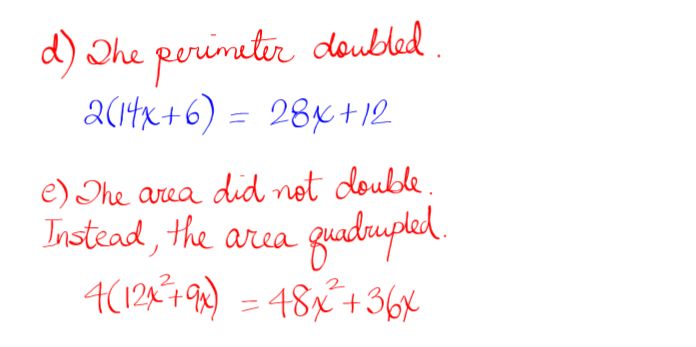 d) The perimeter doubled.
2(14x+6) = 28x+12
e) The area did not double.
Instead, the area quadrupled.
4(12x²+9x) = 48x²+36x